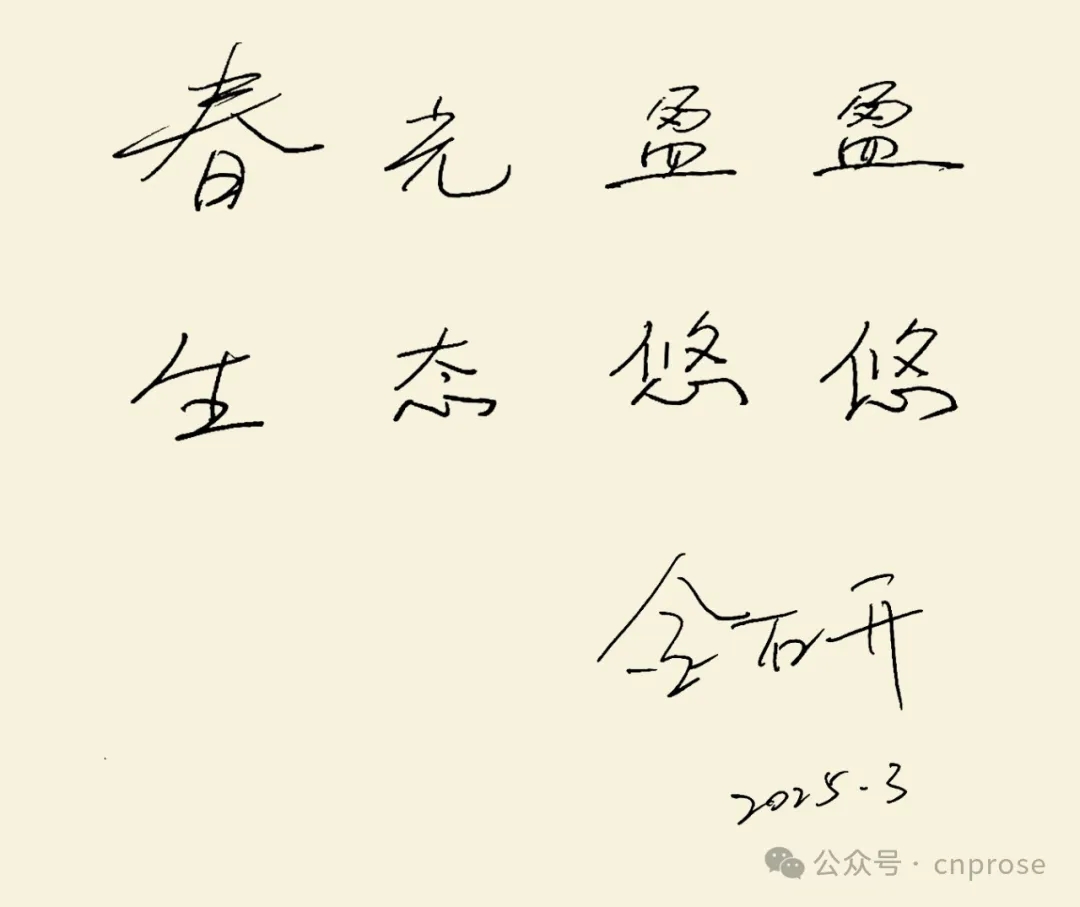 春光盈盈
生态悠悠
金石开
2025.3
公众号 · cnprose